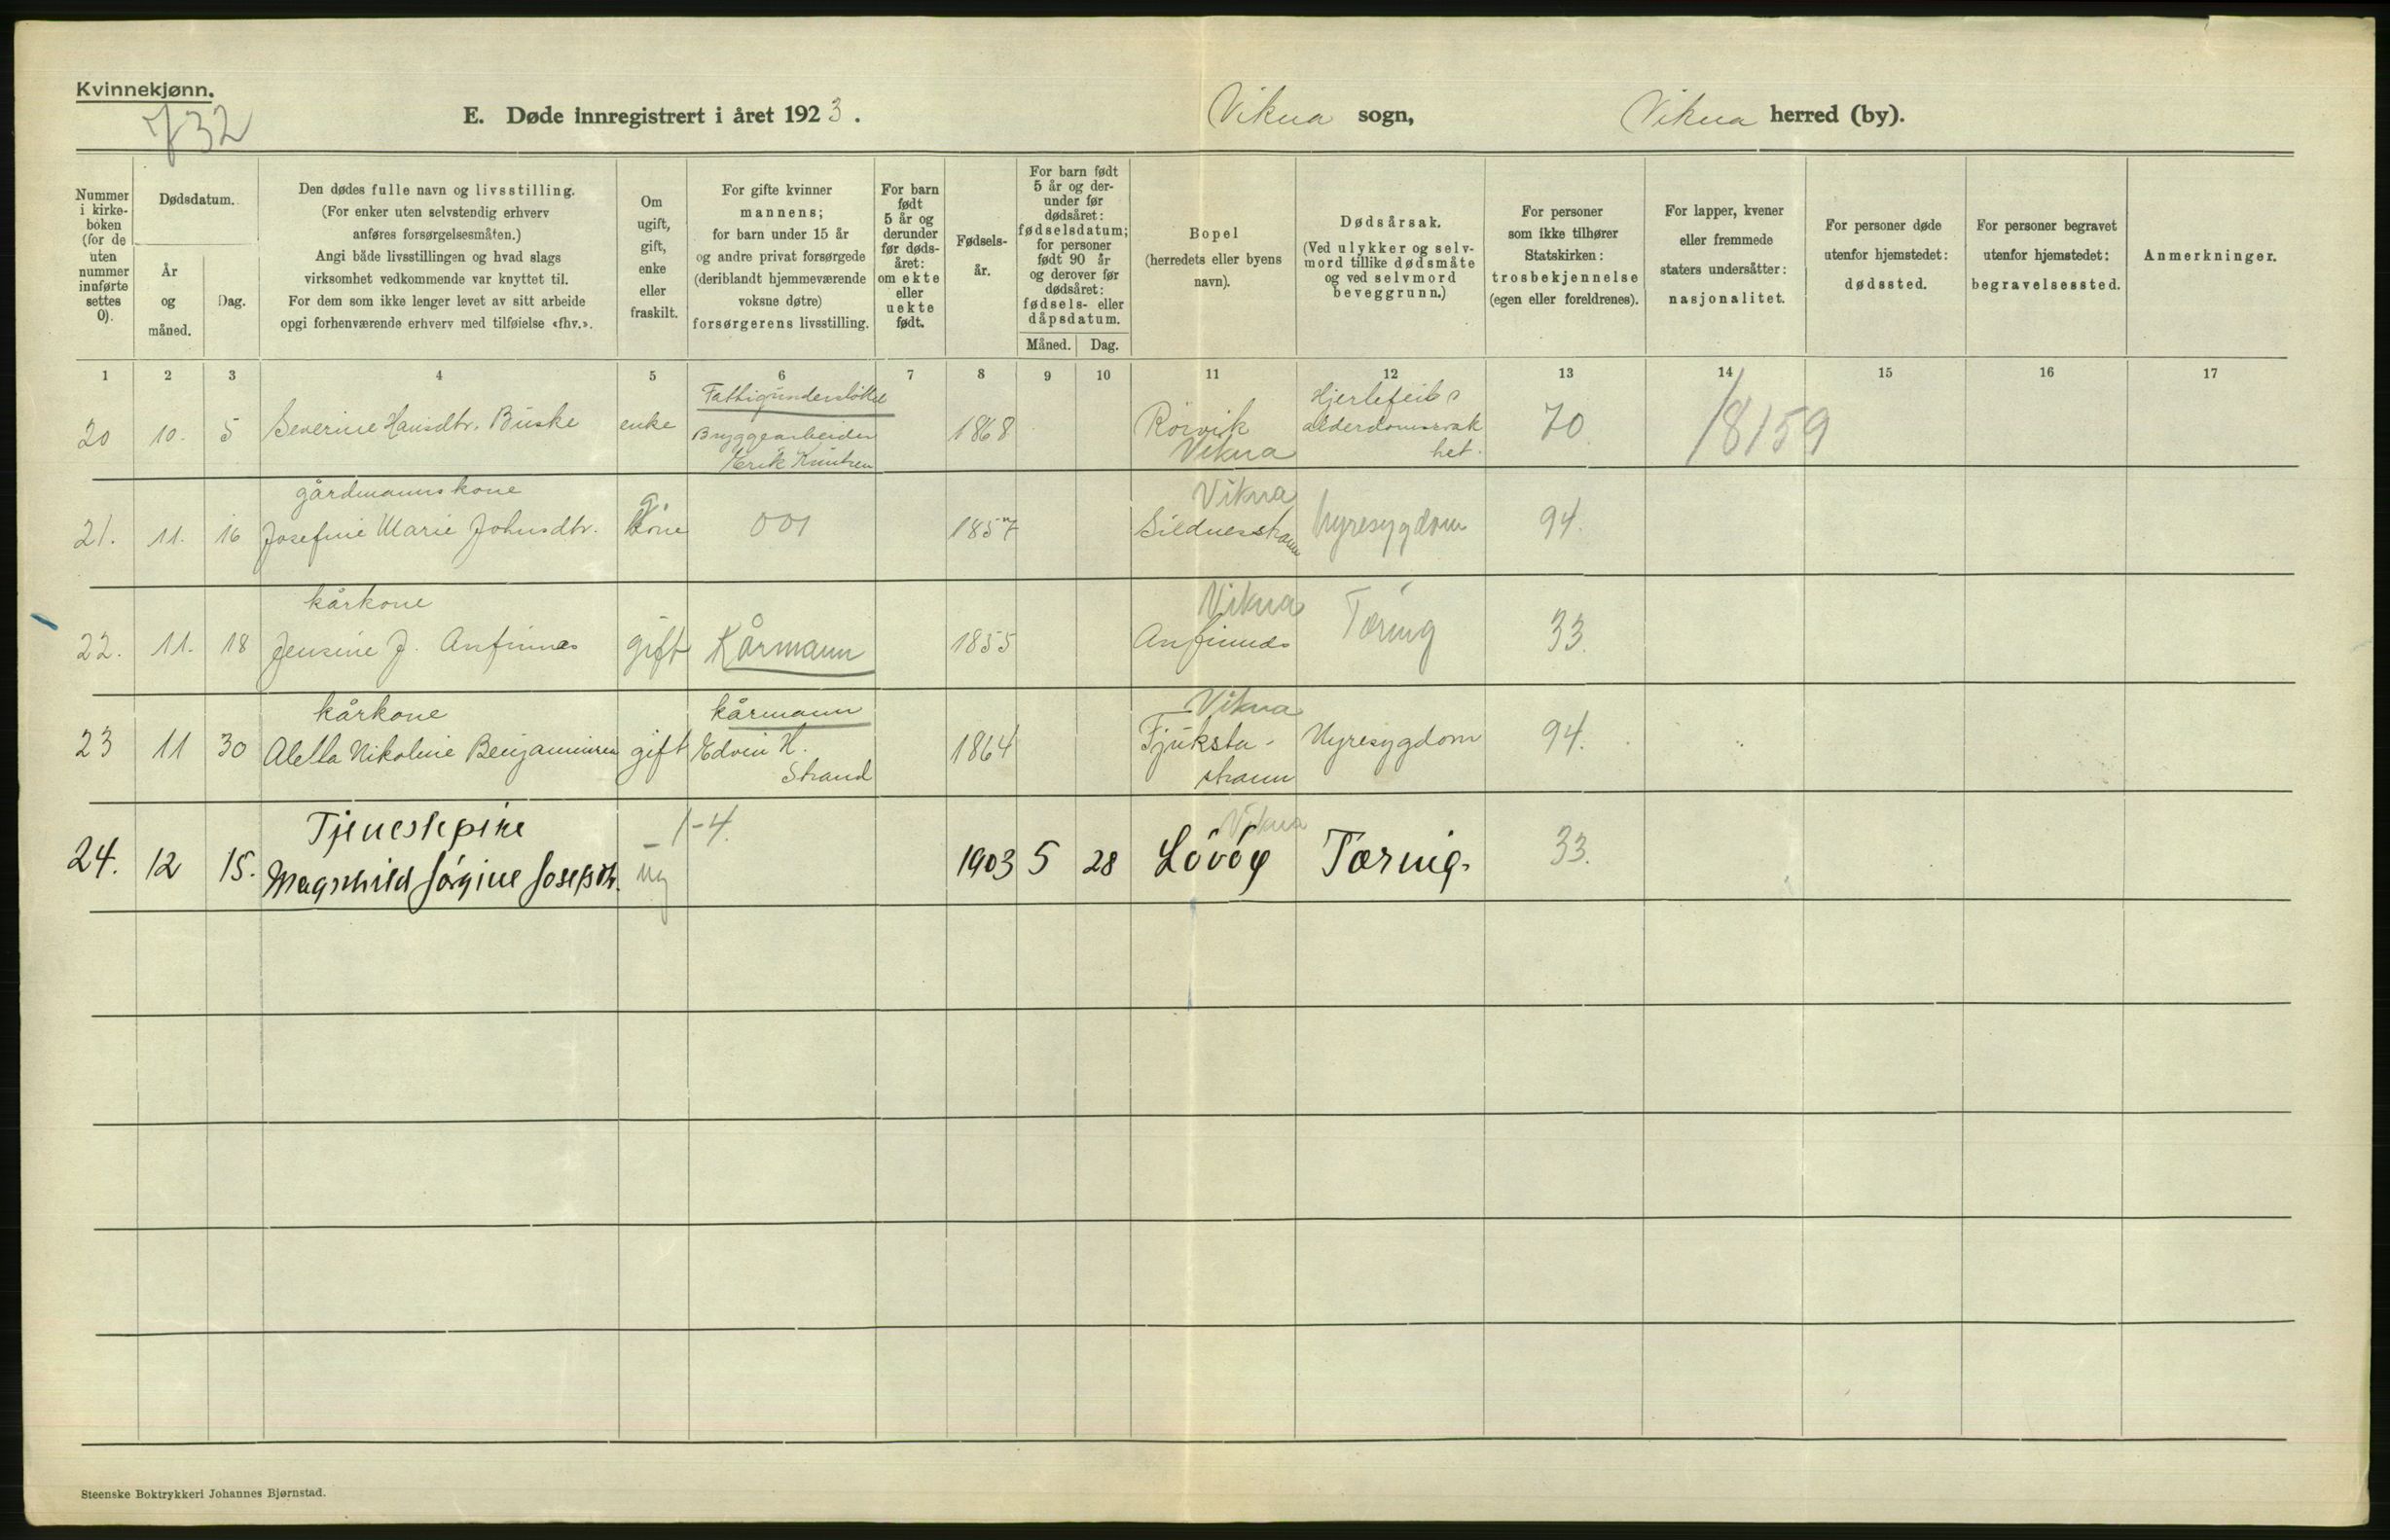 Kvinnekjønn.
732
E. Døde innregistrert i året 1923.
Vikna sogn,
Vikna herred (by).
Nummer i kirke-boken (for de uten nummer innførte settes 0).
Dødsdatum.
År og måned.
Dag.
Den dødes fulle navn og livsstilling.
(For enker uten selvstendig erhverv
anføres forsørgelsesmåten.)
Angi både livsstillingen og hvad slags
virksomhet vedkommende var knyttet til.
For dem som ikke lenger levet av sitt arbeide
opgi forhenværende erhverv med tilføielse «fhv.».
Om ugift, gift, enke eller fraskilt.
For gifte kvinner
mannens;
for barn under 15 år
og andre privat forsørgede
(deriblandt hjemmeværende
voksne døtre)
forsørgerens livsstilling.
For barn født 5 år og derunder før døds-året: om ekte eller uekte født.
Fødsels-år.
For barn født
5 år og der-
under før
dødsåret:
fødselsdatum;
for personer
født 90 år
og derover før
dødsåret:
fødsels- eller
dåpsdatum.
Måned.
Dag.
Bopel
(herredets eller byens
navn).
Dødsårsak.
(Ved ulykker og selv-
mord tillike dødsmåte
og ved selvmord
beveggrunn.)
For personer
som ikke tilhører
Statskirken:
trosbekjennelse
(egen eller foreldrenes).
For lapper, kvener
eller fremmede
staters undersåtter:
nasjonalitet.
For personer døde
utenfor hjemstedet:
dødssted.
For personer begravet
utenfor hjemstedet:
begravelsessted.
Anmerkninger.
1 2 3 4 5 6 7 8 9 10 11 12 13 14 15 16 17
Fattigunderstøttet
20 10. 5 Severine Hansdtr. Buske enke Bryggearbeider Erik Knutsen 1868 Rörvik Vikna Hjertefeil alderdomssvakhet. 70. 18159
gårdmannskone
21. 11. 16 Josefine Marie Johnsdtr. g. kone 001 1857 Vikna Sildnesstrann Nyresygdom 94.
kårkone
22. 11. 18 Jensine J. Anfinnes gift Kårmann 1855 Vikna Anfinnds Tæring 33.
kårkone kårmann
23 11 30 Aletta Nikoline Benjaminsen gift Edvin H. Strand 1864 Vikna Fjuksta-strann Nyresygdom 94.
Tjenestepike 1-4.
24. 12 15. Magnhild Jörgine Josepdtr. ug 1903 5 28 Vikna Lövöy Tæring. 33.
Steenske Boktrykkeri Johannes Bjørnstad.